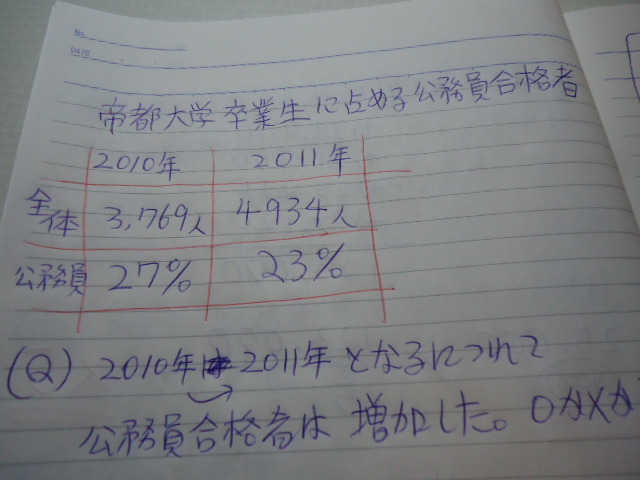 No.
DATE
帝都大学卒業生に占める公務員合格者
2010年 2011年
全体 3,769人 4934人
公務員 27% 23%
(Q) 2010年 2011年となるにつれて
公務員合格者は増加した。○か×か